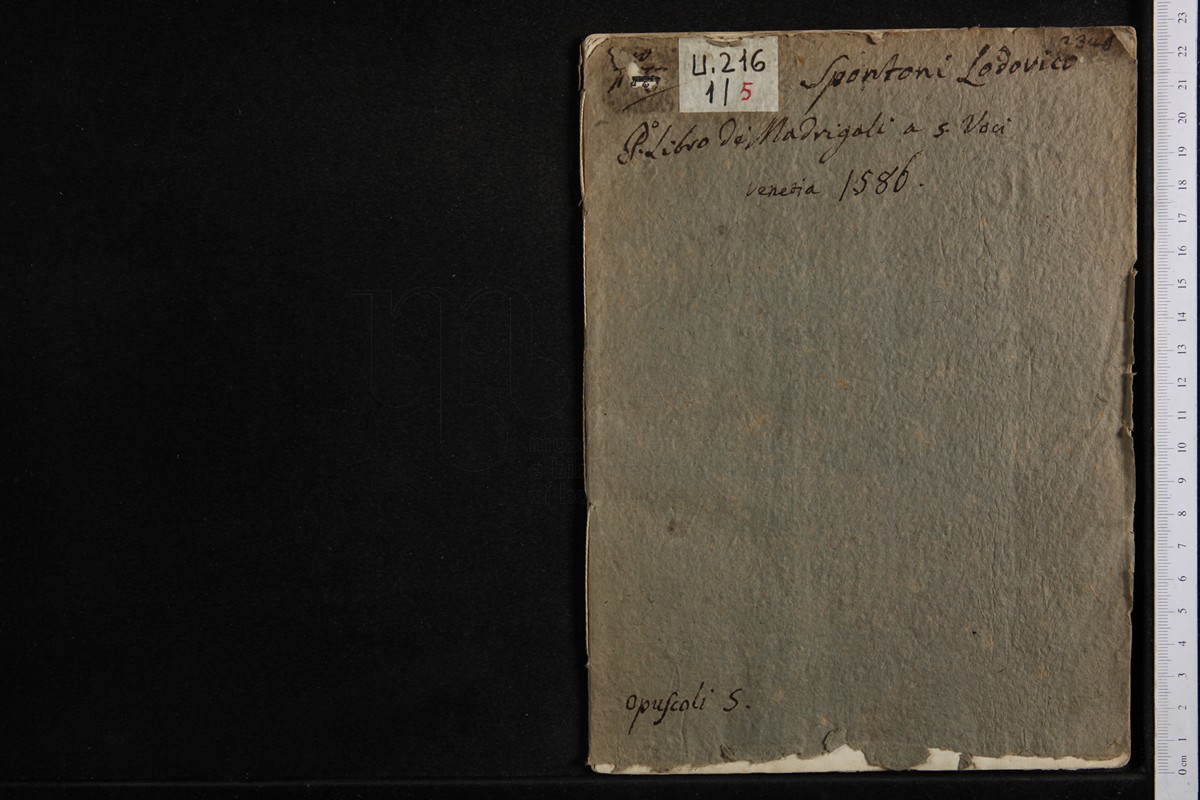 U.216
1/5
Spontoni Lodovico
P.º Libro de Madrigali a 5 Voci
Venetia 1586.
opuscoli 5.
23
22
21
20
19
18
17
16
15
14
13
12
11
10
9
8
7
6
5
4
3
2
1
0 cm